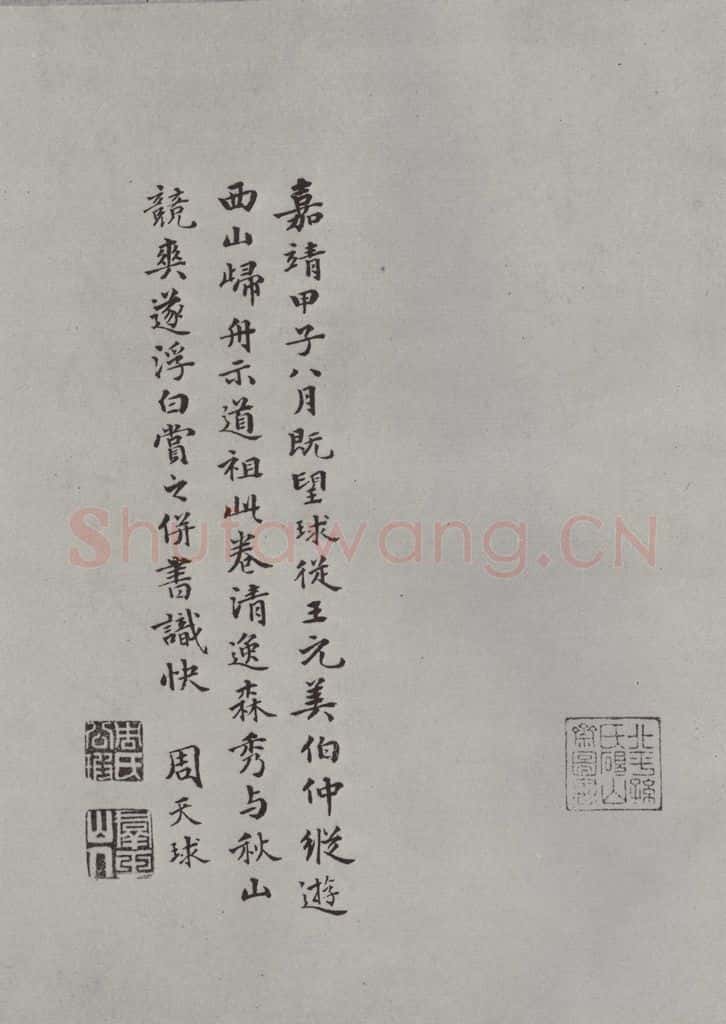 嘉靖甲子八月既望球從王元美伯仲縱遊
西山歸舟示道祖此卷清逸森秀与秋山
競爽遂浮白賞之併書識快
周天球
周氏公瑕
Shutawang.CN